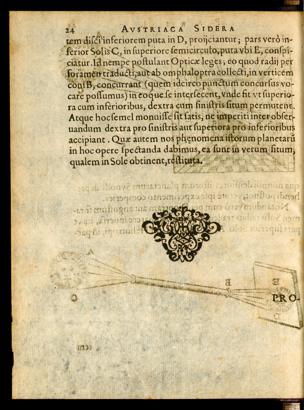 24 AVSTRIACA SIDERA
tem disci inferiorem puta in D, proijciantur; pars verò in-
ferior Solis C, in superiore semicirculo, puta vbi E, conspi-
ciatur. Id nempe postulant Opticæ leges, eo quod radij per
foramen traducti, aut ab omphaloptra collecti, in verticem
coni B, concurrant (quem idcirco punctum concursus vo-
care possumus) in eoque se intersecent, vnde fit vt superio-
ra cum inferioribus, dextra cum sinistris situm permutent.
Atque hoc semel monuisse sit satis, ne imperiti inter obser-
uandum dextra pro sinistris aut superiora pro inferioribus
accipiant. Quæ autem nos phænomena istorum planetarũ
in hoc opere spectanda dabimus, ea sunt in verum situm,
qualem in Sole obtinent, restituta.
PRO-